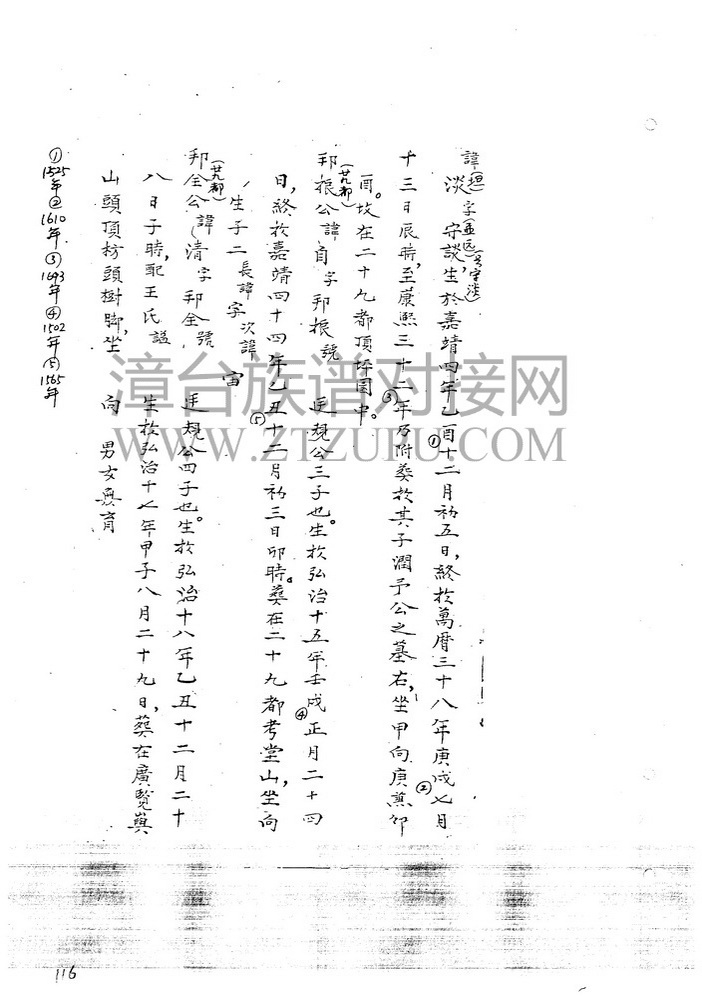 諱(垣)字(孟區)(另字淡)
淡 守談,生於嘉靖四年乙酉①十二月初五日,終於萬曆三十八年庚戌②七月
十三日辰時,至康熙三十二年③乃附葬於其子潤予公之墓右,坐甲向庚兼卯
酉。坟在二十九都頂坪園中。
(廿九都)
邦振公諱 自 字 邦振 號 廷規公三子也。生於弘治十五年壬戌④正月二十四
日,終於嘉靖四十四年乙丑⑤十二月初三日卯時。葬在二十九都考堂山,坐向
生子二 長諱 字 次諱 宙
(廿九都)
邦全公諱(清 字 邦全 號 廷規公四子也。生於弘治十八年乙丑十二月二十
八日子時,配王氏謚 生於弘治十七年甲子八月二十九日,葬在廣覽
山頭頂枋頭樹腳,坐 向 男女無育
①1525年②1610年③1693年④1502年⑤1565年
116
漳台族谱对接网
WWW.ZTZUPU.COM